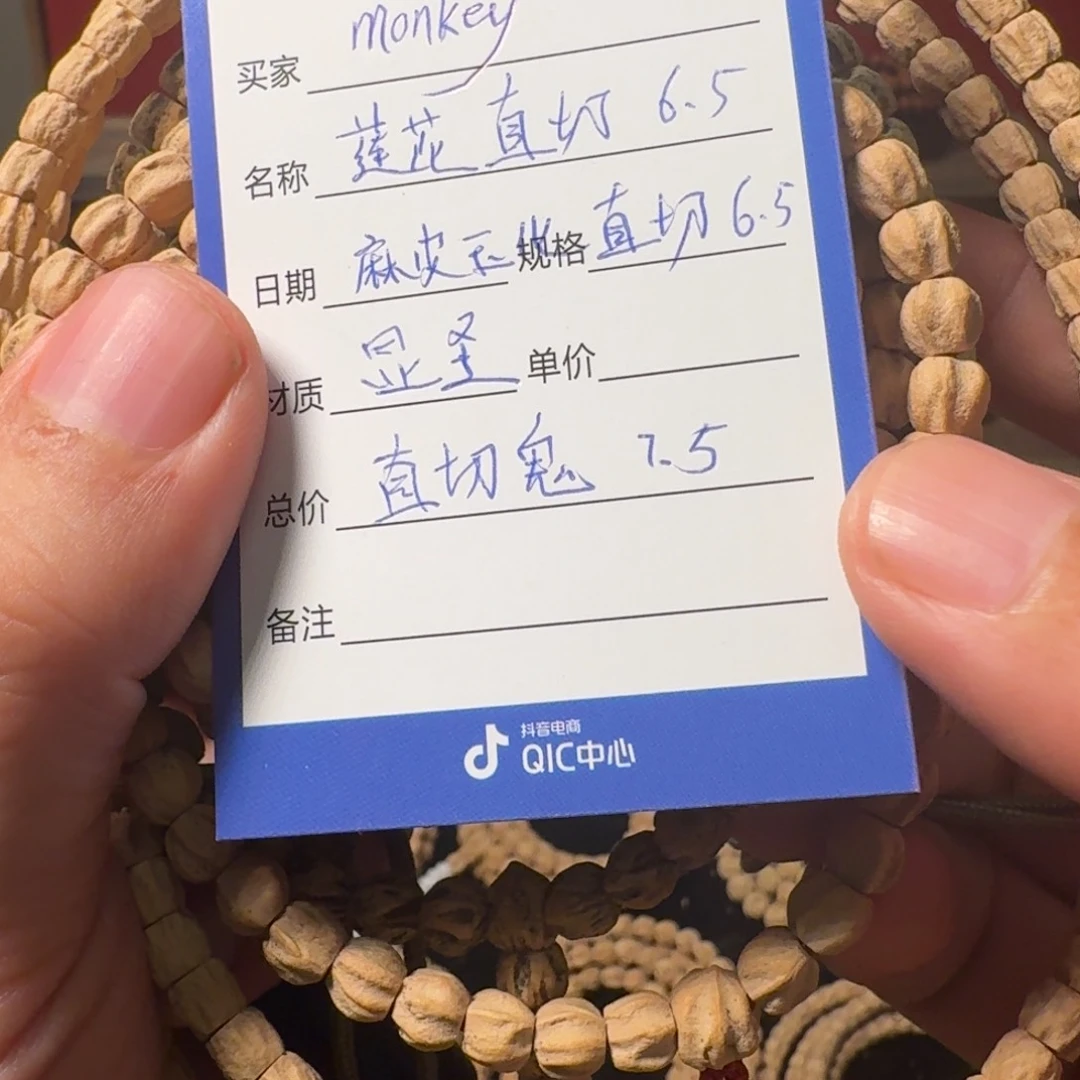 买家 monkey
名称 莲花直切 6.5
日期 麻皮 规格 直切 6.5
材质 显圣 单价
总价 直切鬼 7.5
备注
抖音电商
QIC中心